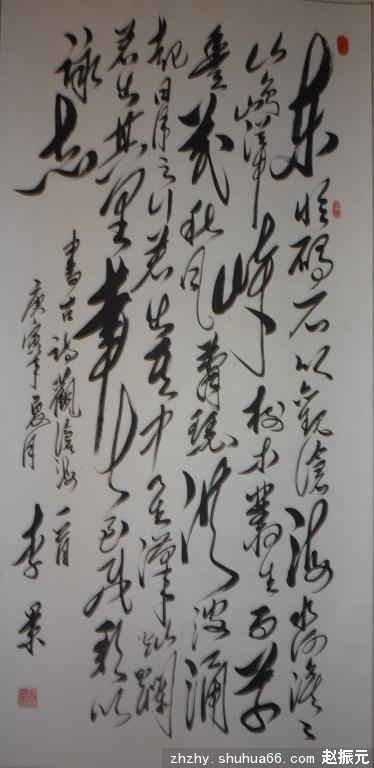 東临碣石以觀滄海水何澹々
山島竦峙樹木叢生百草
豐茂秋風蕭瑟洪波涌
起日月之行若出其中星漢灿爛
若出其里幸甚至哉歌以
詠志
書古詩觀滄海一首
庚寅年夏月 李景
zhzhy.shuhua66.com 赵振元